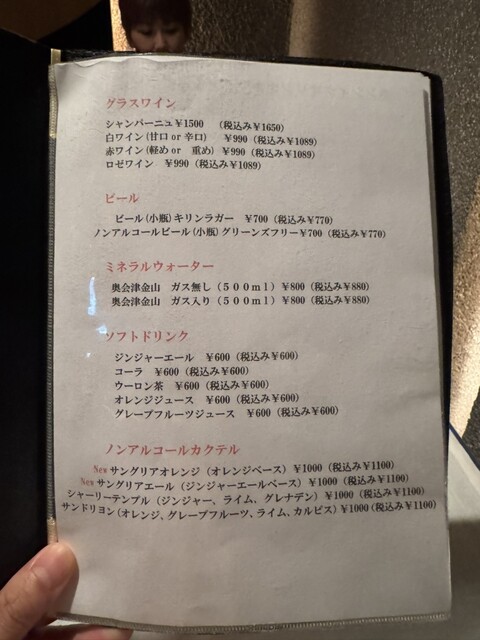 グラスワイン
シャンパーニュ￥1500　（税込み￥1650）
白ワイン（甘口 or 辛口）　￥990（税込み￥1089）
赤ワイン（軽め or　重め）￥990（税込み￥1089）
ロゼワイン　￥990（税込み￥1089）
ビール
ビール（小瓶）キリンラガー　￥700（税込み￥770）
ノンアルコールビール（小瓶）グリーンズフリー￥700（税込み￥770）
ミネラルウォーター
奥会津金山　ガス無し（５００ｍｌ）￥800（税込み￥880）
奥会津金山　ガス入り（５００ｍｌ）￥800（税込み￥880）
ソフトドリンク
ジンジャーエール　￥600（税込み￥600）
コーラ　￥600（税込み￥600）
ウーロン茶　￥600（税込み￥600）
オレンジジュース　￥600（税込み￥600）
グレープフルーツジュース　￥600（税込み￥600）
ノンアルコールカクテル
New サングリアオレンジ（オレンジベース）￥1000（税込み￥1100）
New サングリアエール（ジンジャーエールベース）￥1000（税込み￥1100）
シャーリーテンプル（ジンジャー、ライム、グレナデン）￥1000（税込み￥1100）
サンドリヨン（オレンジ、グレープフルーツ、ライム、カルピス）￥1000（税込み￥1100）